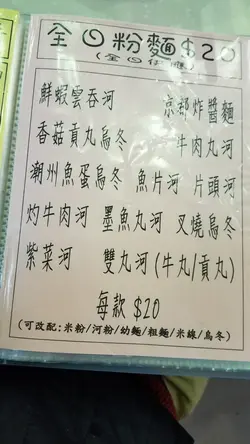 全日粉麵$20
(全日供應)
鮮蝦雲吞河 京都炸醬麵
香菇貢丸烏冬 牛肉丸河
潮州魚蛋烏冬 魚片河 片頭河
灼牛肉河 墨魚丸河 叉燒烏冬
紫菜河 雙丸河(牛丸/貢丸)
每款 $20
(可改配:米粉/河粉/幼麵/粗麵/米線/烏冬)